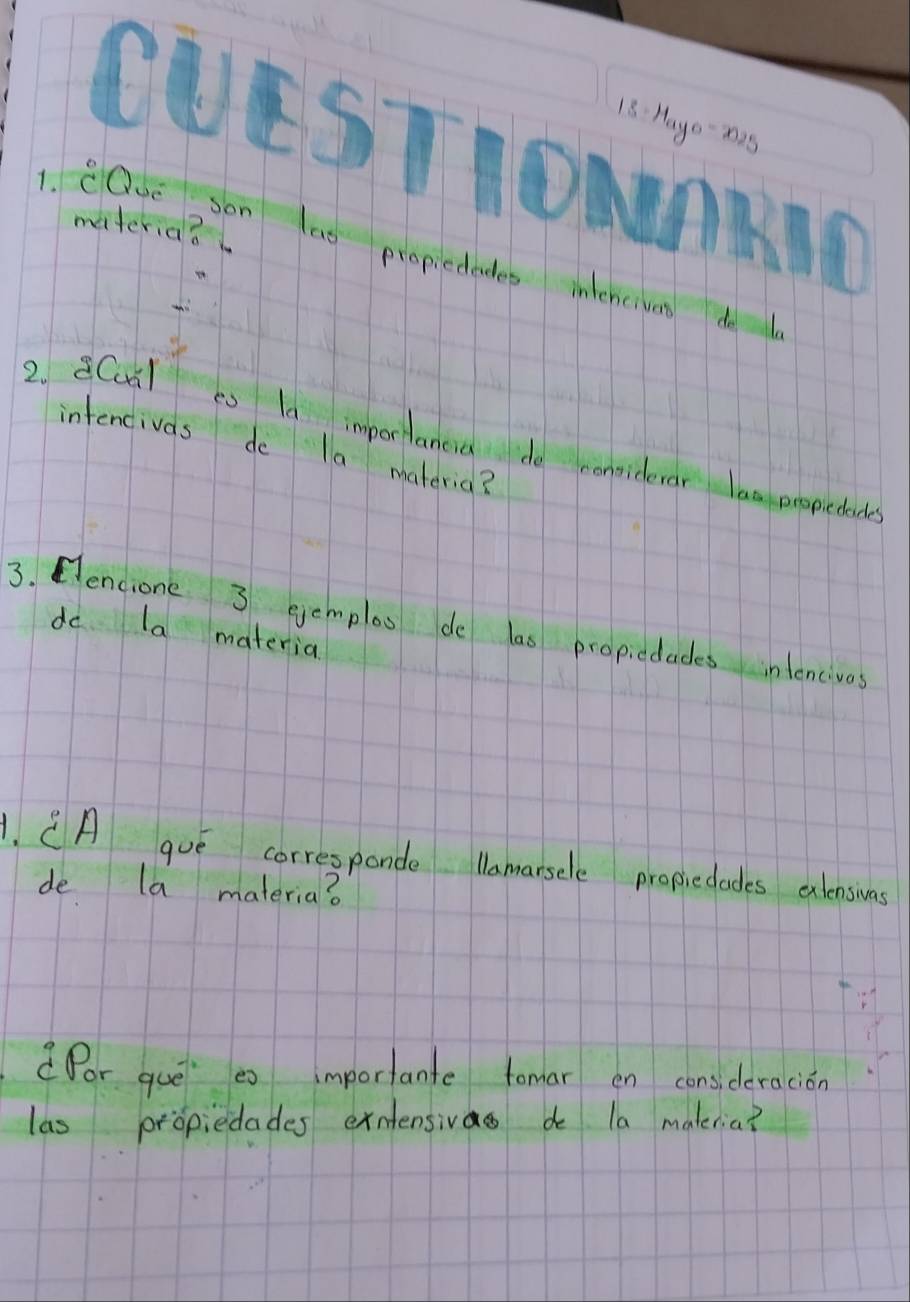 13-Mayo-2025
CUESTIONARIO
1. ¿Qué son las propiedades intencivas de la
materia?
2. ¿Cuál es la importancia de considerar las propiedades
intencivas de la materia?
3. Mencione 3 ejemplos de las propiedades intencivas
de la materia.
4. ¿A qué corresponde llamarsele propiedades extensivas
de la materia?
¿Por qué es importante tomar en consideración
las propiedades exntensivas de la materia?